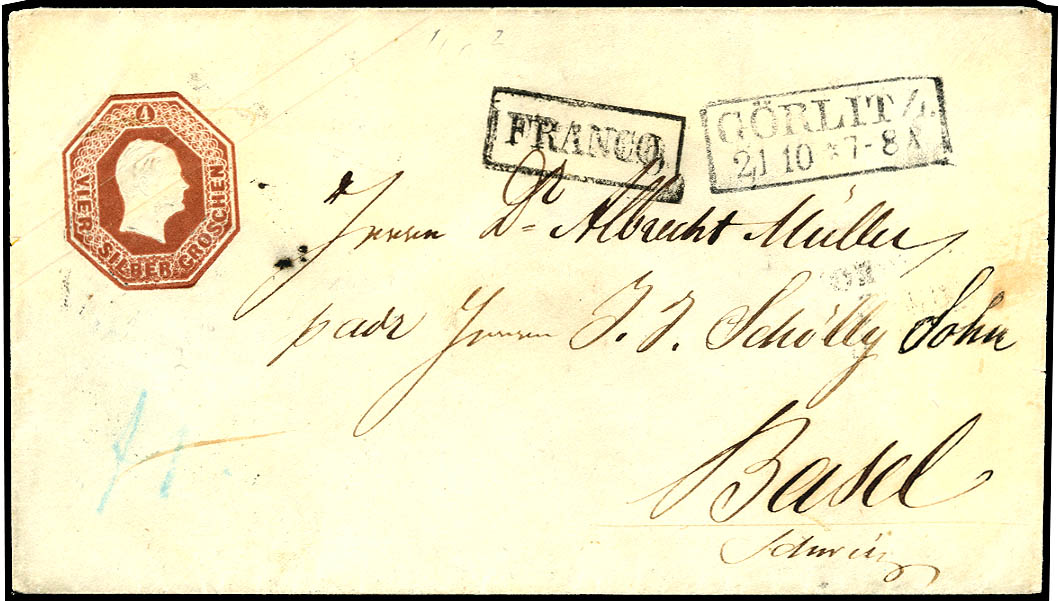 4
VIER SILBER GROSCHEN
FRANCO.
GÖRLITZ
21 10 * 7-8
Herrn Dr. Albrecht Müller
Herrn J. J. Schölly Sohn
Basel
Schweiz